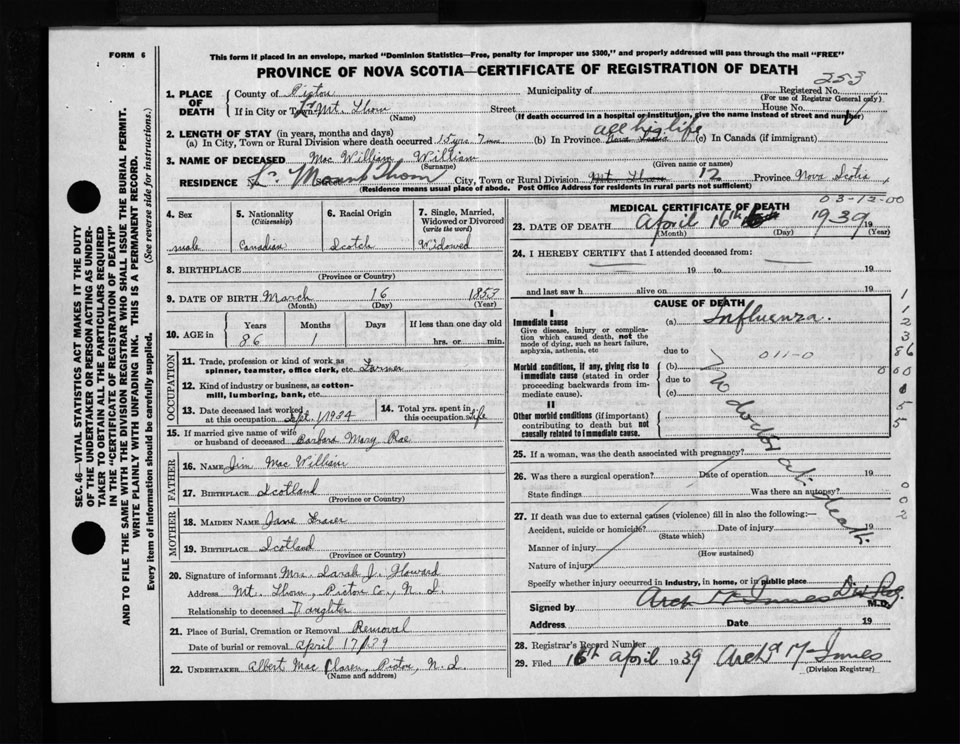 FORM 6
This form if placed in an envelope, marked "Dominion Statistics—Free, penalty for improper use $300," and properly addressed will pass through the mail "FREE"
PROVINCE OF NOVA SCOTIA—CERTIFICATE OF REGISTRATION OF DEATH
253
1. PLACE OF DEATH
County of Pictou Municipality of Registered No.
(For use of Registrar General only)
If in City or Town Mt. Thom Street House No.
(Name) (If death occurred in a hospital or institution, give the name instead of street and number)
2. LENGTH OF STAY (in years, months and days)
all his life
(a) In City, Town or Rural Division where death occurred 15 yrs 7 (b) In Province Nova Scotia (c) In Canada (if immigrant)
3. NAME OF DECEASED Mac William William
(Surname) (Given name or names)
RESIDENCE Mount Thom City, Town or Rural Division Mt. Thom 12 Province Nova Scotia
(Residence means usual place of abode. Post Office Address for residents in rural parts not sufficient)
4. Sex
male
5. Nationality (Citizenship)
Canadian
6. Racial Origin
Scotch
7. Single, Married, Widowed or Divorced (write the word)
Widowed
8. BIRTHPLACE
(Province or County)
9. DATE OF BIRTH March 16 1853
(Month) (Day) (Year)
10. AGE in
Years Months Days If less than one day old
86 1 hrs. or min.
OCCUPATION
11. Trade, profession or kind of work as spinner, teamster, office clerk, etc. Farmer
12. Kind of industry or business, as cotton-mill, lumbering, bank, etc.
13. Date deceased last worked at this occupation Sept. 1/1934
14. Total yrs. spent in this occupation life
15. If married give name of wife or husband of deceased Barbara Mary Rae
FATHER
16. NAME Jim Mac William
17. BIRTHPLACE Scotland
(Province or Country)
MOTHER
18. MAIDEN NAME Jane Fraser
19. BIRTHPLACE Scotland
(Province or Country)
20. Signature of informant Mrs. Sarah J. Howard
Address Mt. Thom, Pictou Co., N. S.
Relationship to deceased Daughter
21. Place of Burial, Cremation or Removal Removal
Date of burial or removal April 17/39
22. UNDERTAKER Albert Mac Claren, Pictou, N. S.
(Name and address)
03-12-00
MEDICAL CERTIFICATE OF DEATH
23. DATE OF DEATH April 16th 1939 19
(Month) (Day) (Year)
24. I HEREBY CERTIFY that I attended deceased from:
19 to 19
and last saw h alive on 19
CAUSE OF DEATH
I
Immediate cause
Give disease, injury or complication which caused death, not the mode of dying, such as heart failure, asphyxia, asthenia, etc
(a) Influenza.
due to
011-0
Morbid conditions, if any, giving rise to immediate cause (stated in order proceeding backwards from immediate cause).
(b)
due to
(c)
II
Other morbid conditions (if important) contributing to death but not causally related to immediate cause.
No doctor at death.
25. If a woman, was the death associated with pregnancy?
26. Was there a surgical operation? Date of operation 19
State findings Was there an autopsy?
27. If death was due to external causes (violence) fill in also the following:—
Accident, suicide or homicide? Date of injury 19
(State which)
Manner of injury
(How sustained)
Nature of injury
Specify whether injury occurred in industry, in home, or in public place
Signed by Arch McInnes Div Reg. M.D.
Address Date 19
28. Registrar's Record Number
29. Filed 16th April 1939 Archd McInnes
(Division Registrar)
SEC. 46—VITAL STATISTICS ACT MAKES IT THE DUTY
OF THE UNDERTAKER OR PERSON ACTING AS UNDER-
TAKER TO OBTAIN ALL THE PARTICULARS REQUIRED
IN THE "CERTIFICATE OF REGISTRATION OF DEATH"
AND TO FILE THE SAME WITH THE DIVISION REGISTRAR WHO SHALL ISSUE THE BURIAL PERMIT.
WRITE PLAINLY WITH UNFADING INK. THIS IS A PERMANENT RECORD.
Every item of information should be carefully supplied. (See reverse side for instructions.)
1
1
2
3
86
5
5
0
0
2